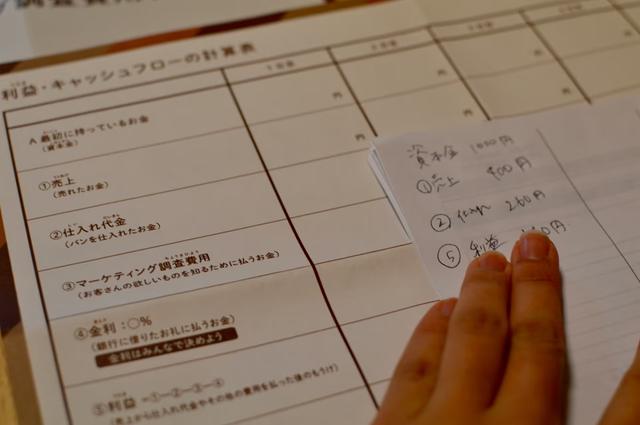 利益・キャッシュフローの計算表
円
円
円
円
A 最初に持っているお金
(資本金)
①売上
(売れたお金)
②仕入れ代金
(パンを仕入れたお金)
③マーケティング調査費用
(お客さんの欲しいものを知るために払うお金)
④金利:○%
(銀行に借りたお礼に払うお金)
金利はみんなで決めよう
⑤利益=①-②-③-④
(売上から仕入れ代金やその他の費用を払った後のもうけ)
資本金 1000円
①売上 900円
②仕入れ 260円
⑤利益